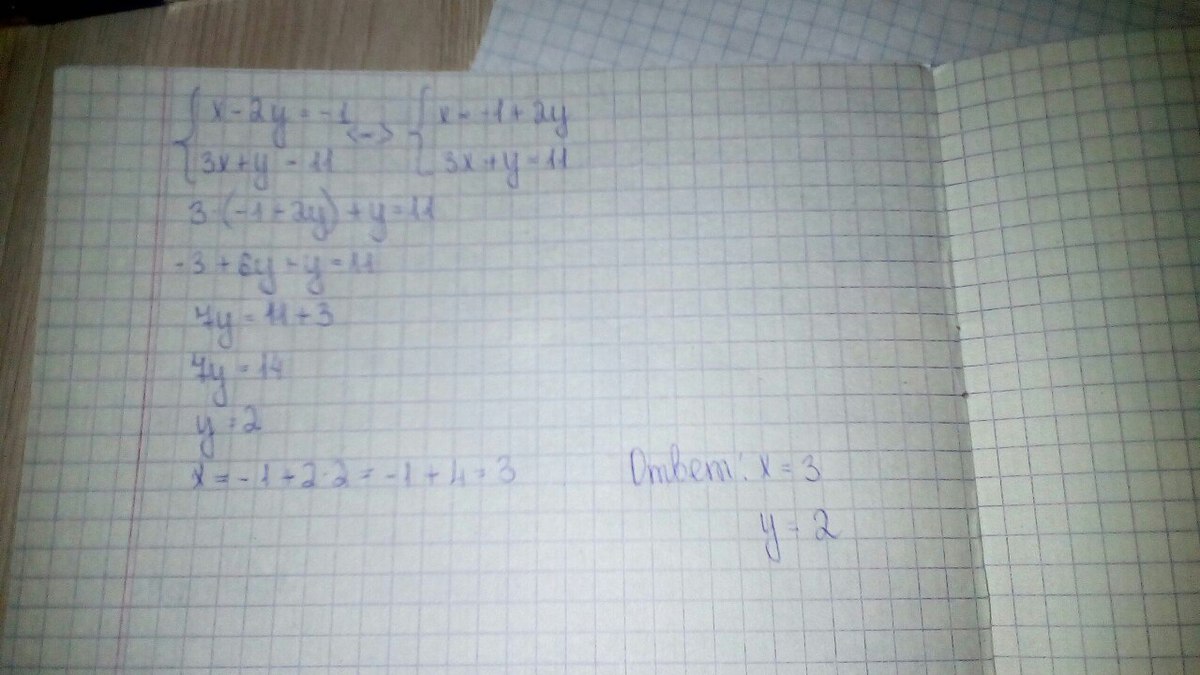 { x - 2y = -1 <=> { x = -1 + 2y
{ 3x + y = 11 { 3x + y = 11
3·(-1 + 2y) + y = 11
-3 + 6y + y = 11
7y = 11 + 3
7y = 14
y = 2
x = -1 + 2·2 = -1 + 4 = 3 Ответ: x = 3
y = 2